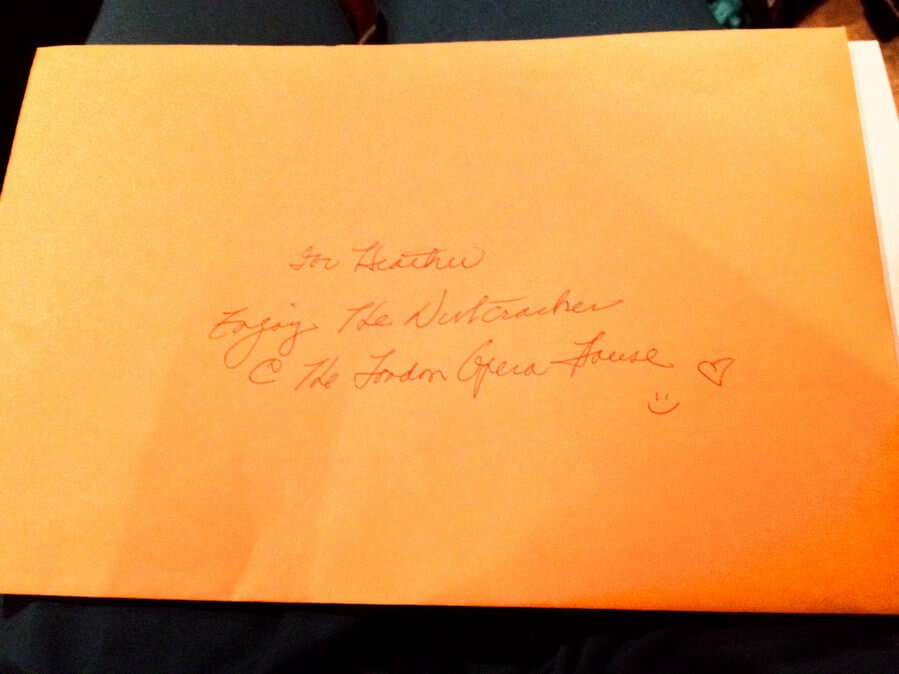 For Heather
Enjoy The Nutcracker
@ The London Opera House ♡
:)